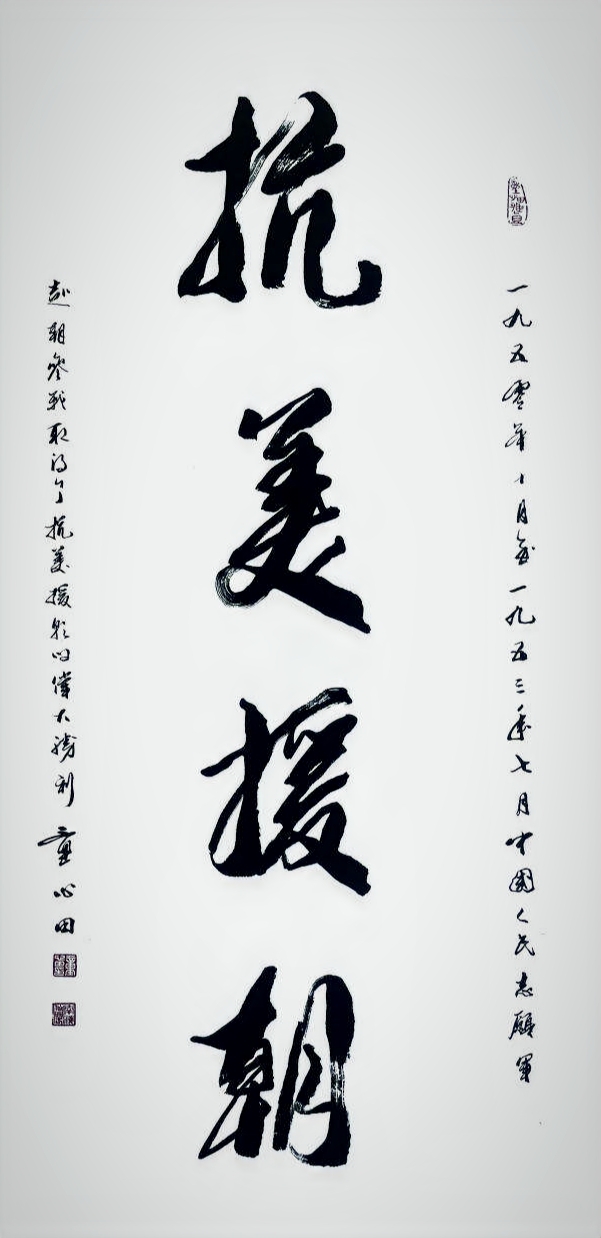 一九五零年十月至一九五三年七月中國人民志願軍
抗美援朝
赴朝參戰取得了抗美援朝的偉大勝利 童心田